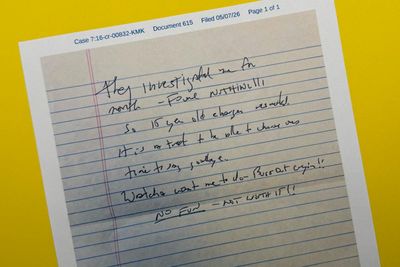 Case 7:16-cr-00832-KMK Document 615 Filed 05/07/26 Page 1 of 1
They investigated me for
month - Found NOTHING!!!
So 15 year old charges
It is a treat to be able to choose ones
time to say goodbye.
Watcha want me to do - Burst out crying!!
NO FUN - NOT WORTH IT!!